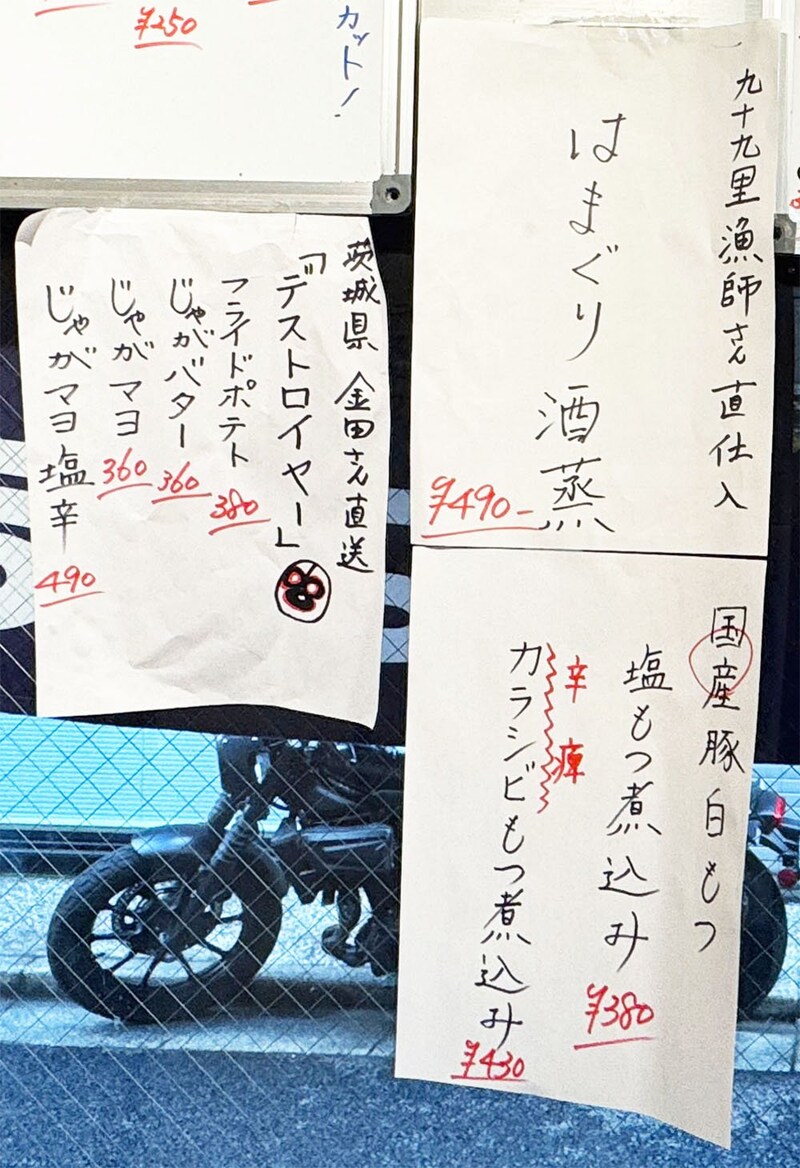 ¥250
カット!
九十九里漁師さん直仕入
はまぐり酒蒸
¥490-
茨城県 金田さん直送
「デストロイヤー」
フライドポテト
380
じゃがバター
360
じゃがマヨ
360
じゃがマヨ塩辛
490
国産豚白もつ
塩もつ煮込み
¥380
辛痺
カラシビもつ煮込み
¥430